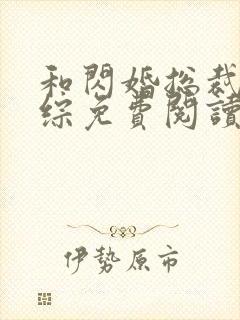 和閃婚總裁
綜免費閱讀
伊勢原市